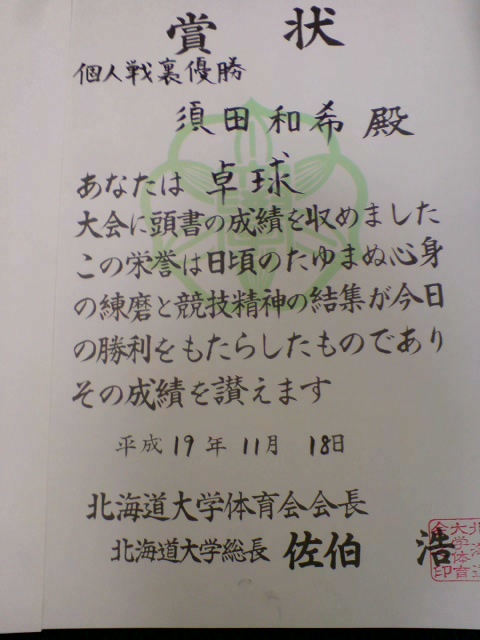 賞状
個人戦裏優勝
須田和希殿
あなたは 卓球
大会に頭書の成績を収めました
この栄誉は日頃のたゆまぬ心身
の練磨と競技精神の結集が今日
の勝利をもたらしたものであり
その成績を讃えます
平成19年11月 18日
北海道大学体育会会長
北海道大学総長 佐伯 浩
北海道
大学体育
会印